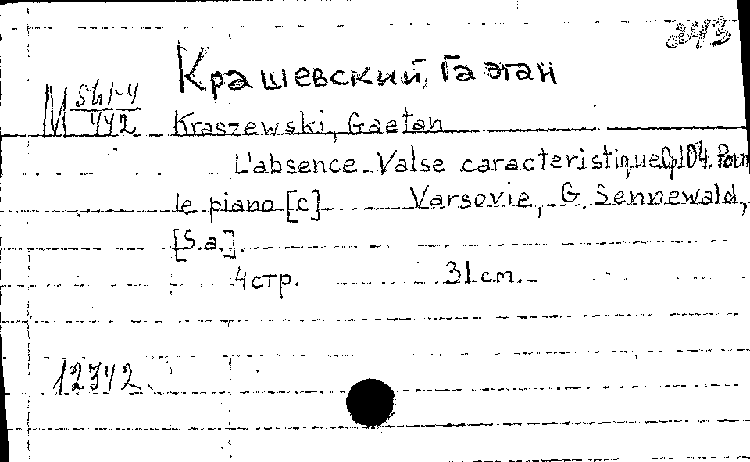 243
Крашевский, Гаэтан
М 541-4
442
Kraszewski, Gaetan
L'absence. Valse caracteristique. Op 104. Pour
le piano [c] Varsovie, G. Sennewald,
[S.a.].
4 стр. 31 см.
12342